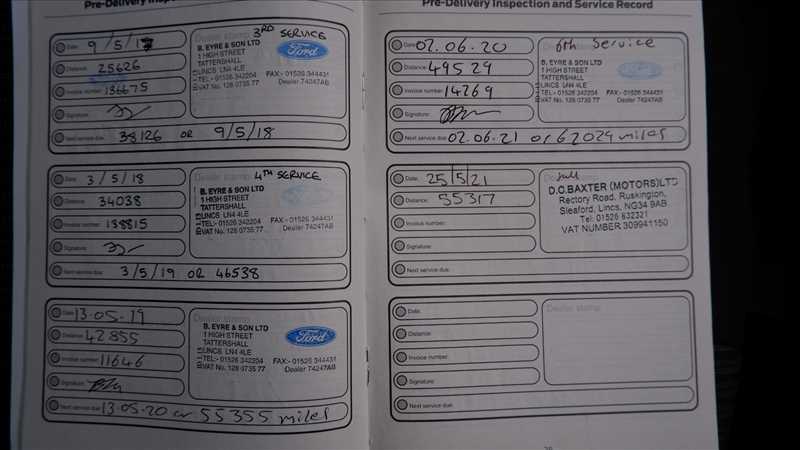 Pre-Delivery Inspec
Date: 9/5/17
Distance: 25626
Invoice number: 136675
Signature:
Next service due: 38126 OR 9/5/18
Dealer stamp 3RD SERVICE
B. EYRE & SON LTD
1 HIGH STREET
TATTERSHALL
LINCS LN4 4LE
TEL:- 01526 342204 FAX:- 01526 344431
VAT No. 128 0735 77 Dealer 74247AB
Ford
Date: 3/5/18
Distance: 34038
Invoice number: 138815
Signature:
Next service due: 3/5/19 OR 46538
Dealer stamp 4TH SERVICE
B. EYRE & SON LTD
1 HIGH STREET
TATTERSHALL
LINCS LN4 4LE
TEL:- 01526 342204 FAX:- 01526 344431
VAT No. 128 0735 77 Dealer 74247AB
Date: 13-05-19
Distance: 42855
Invoice number: 11646
Signature:
Next service due: 13-05-20 or 55355 miles
Dealer stamp
B. EYRE & SON LTD
1 HIGH STREET
TATTERSHALL
LINCS LN4 4LE
TEL:- 01526 342204 FAX:- 01526 344431
VAT No. 128 0735 77 Dealer 74247AB
Ford
Pre-Delivery Inspection and Service Record
Date: 02.06.20
Distance: 49529
Invoice number: 14269
Signature:
Next service due: 02.06.21 or 62029 miles
6th Service
B. EYRE & SON LTD
1 HIGH STREET
TATTERSHALL
LINCS LN4 4LE
TEL:- 01526 342204 FAX:- 01526 344431
VAT No. 128 0735 77 Dealer 74247AB
Date: 25/5/21
Distance: 55317
Invoice number:
Signature:
Next service due:
full
D.C.BAXTER (MOTORS)LTD
Rectory Road, Ruskington,
Sleaford, Lincs, NG34 9AB
Tel: 01526 832321
VAT NUMBER 309941150
Date:
Distance:
Invoice number:
Signature:
Next service due:
Dealer stamp